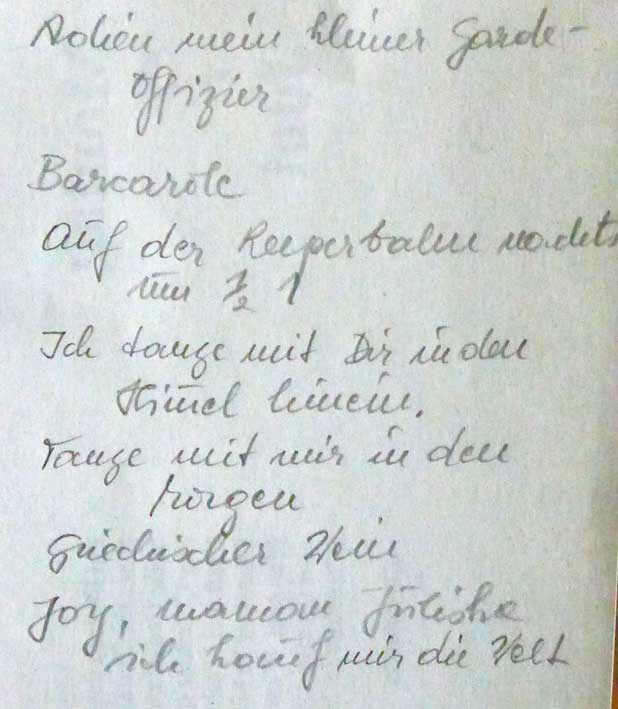 Adieu mein kleiner Garde-
Offizier
Barcarole
Auf der Reeperbahn nachts
um ½ 1
Ich tanze mit Dir in den
Himmel hinein.
Tanze mit mir in den
Morgen
Griechischer Wein
Joy, maman
ich kauf mir die Welt